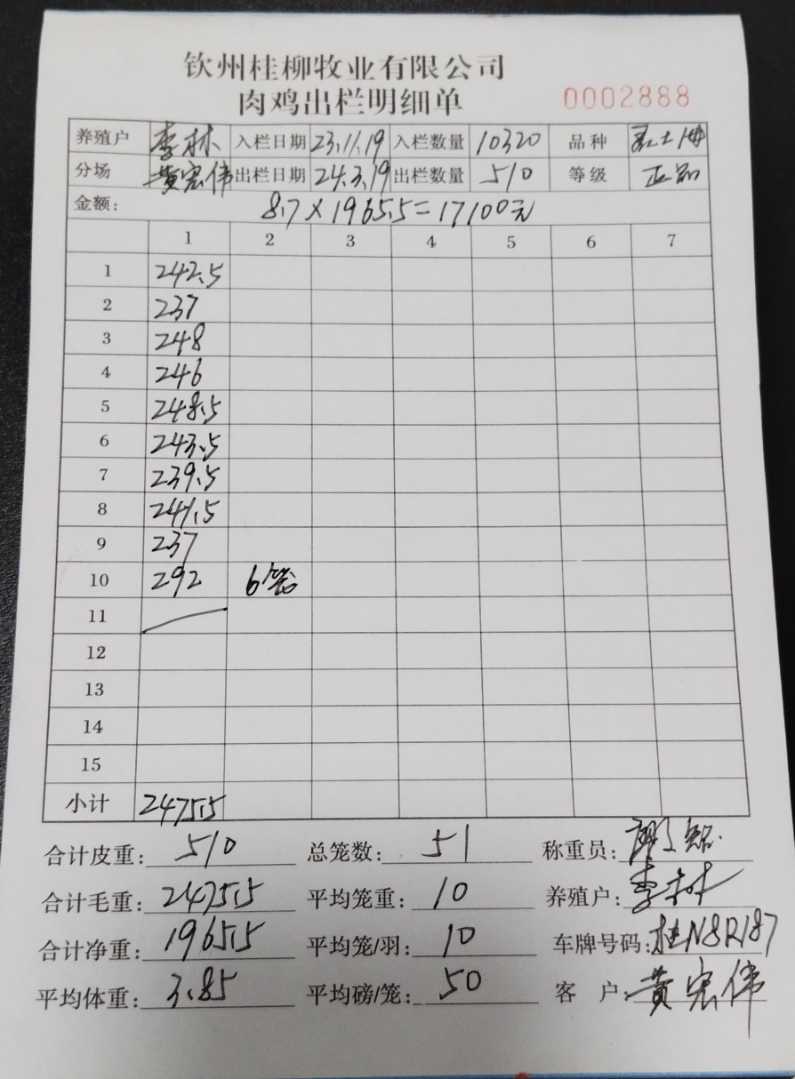 钦州桂柳牧业有限公司
肉鸡出栏明细单 0002888
养殖户 李林 入栏日期 23.11.19 入栏数量 10320 品种
分场 黄宏伟 出栏日期 24.3.19 出栏数量 510 等级 正品
金额: 8.7×1965.5=17100元
1 2 3 4 5 6 7
1 242.5
2 237
3 248
4 246
5 248.5
6 243.5
7 239.5
8 241.5
9 237
10 292 6笼
11
12
13
14
15
小计 2475.5
合计皮重: 510 总笼数: 51 称重员:
合计毛重: 2475.5 平均笼重: 10 养殖户: 李林
合计净重: 1965.5 平均笼/羽: 10 车牌号码: 桂N8R187
平均体重: 3.85 平均磅/笼: 50 客 户: 黄宏伟